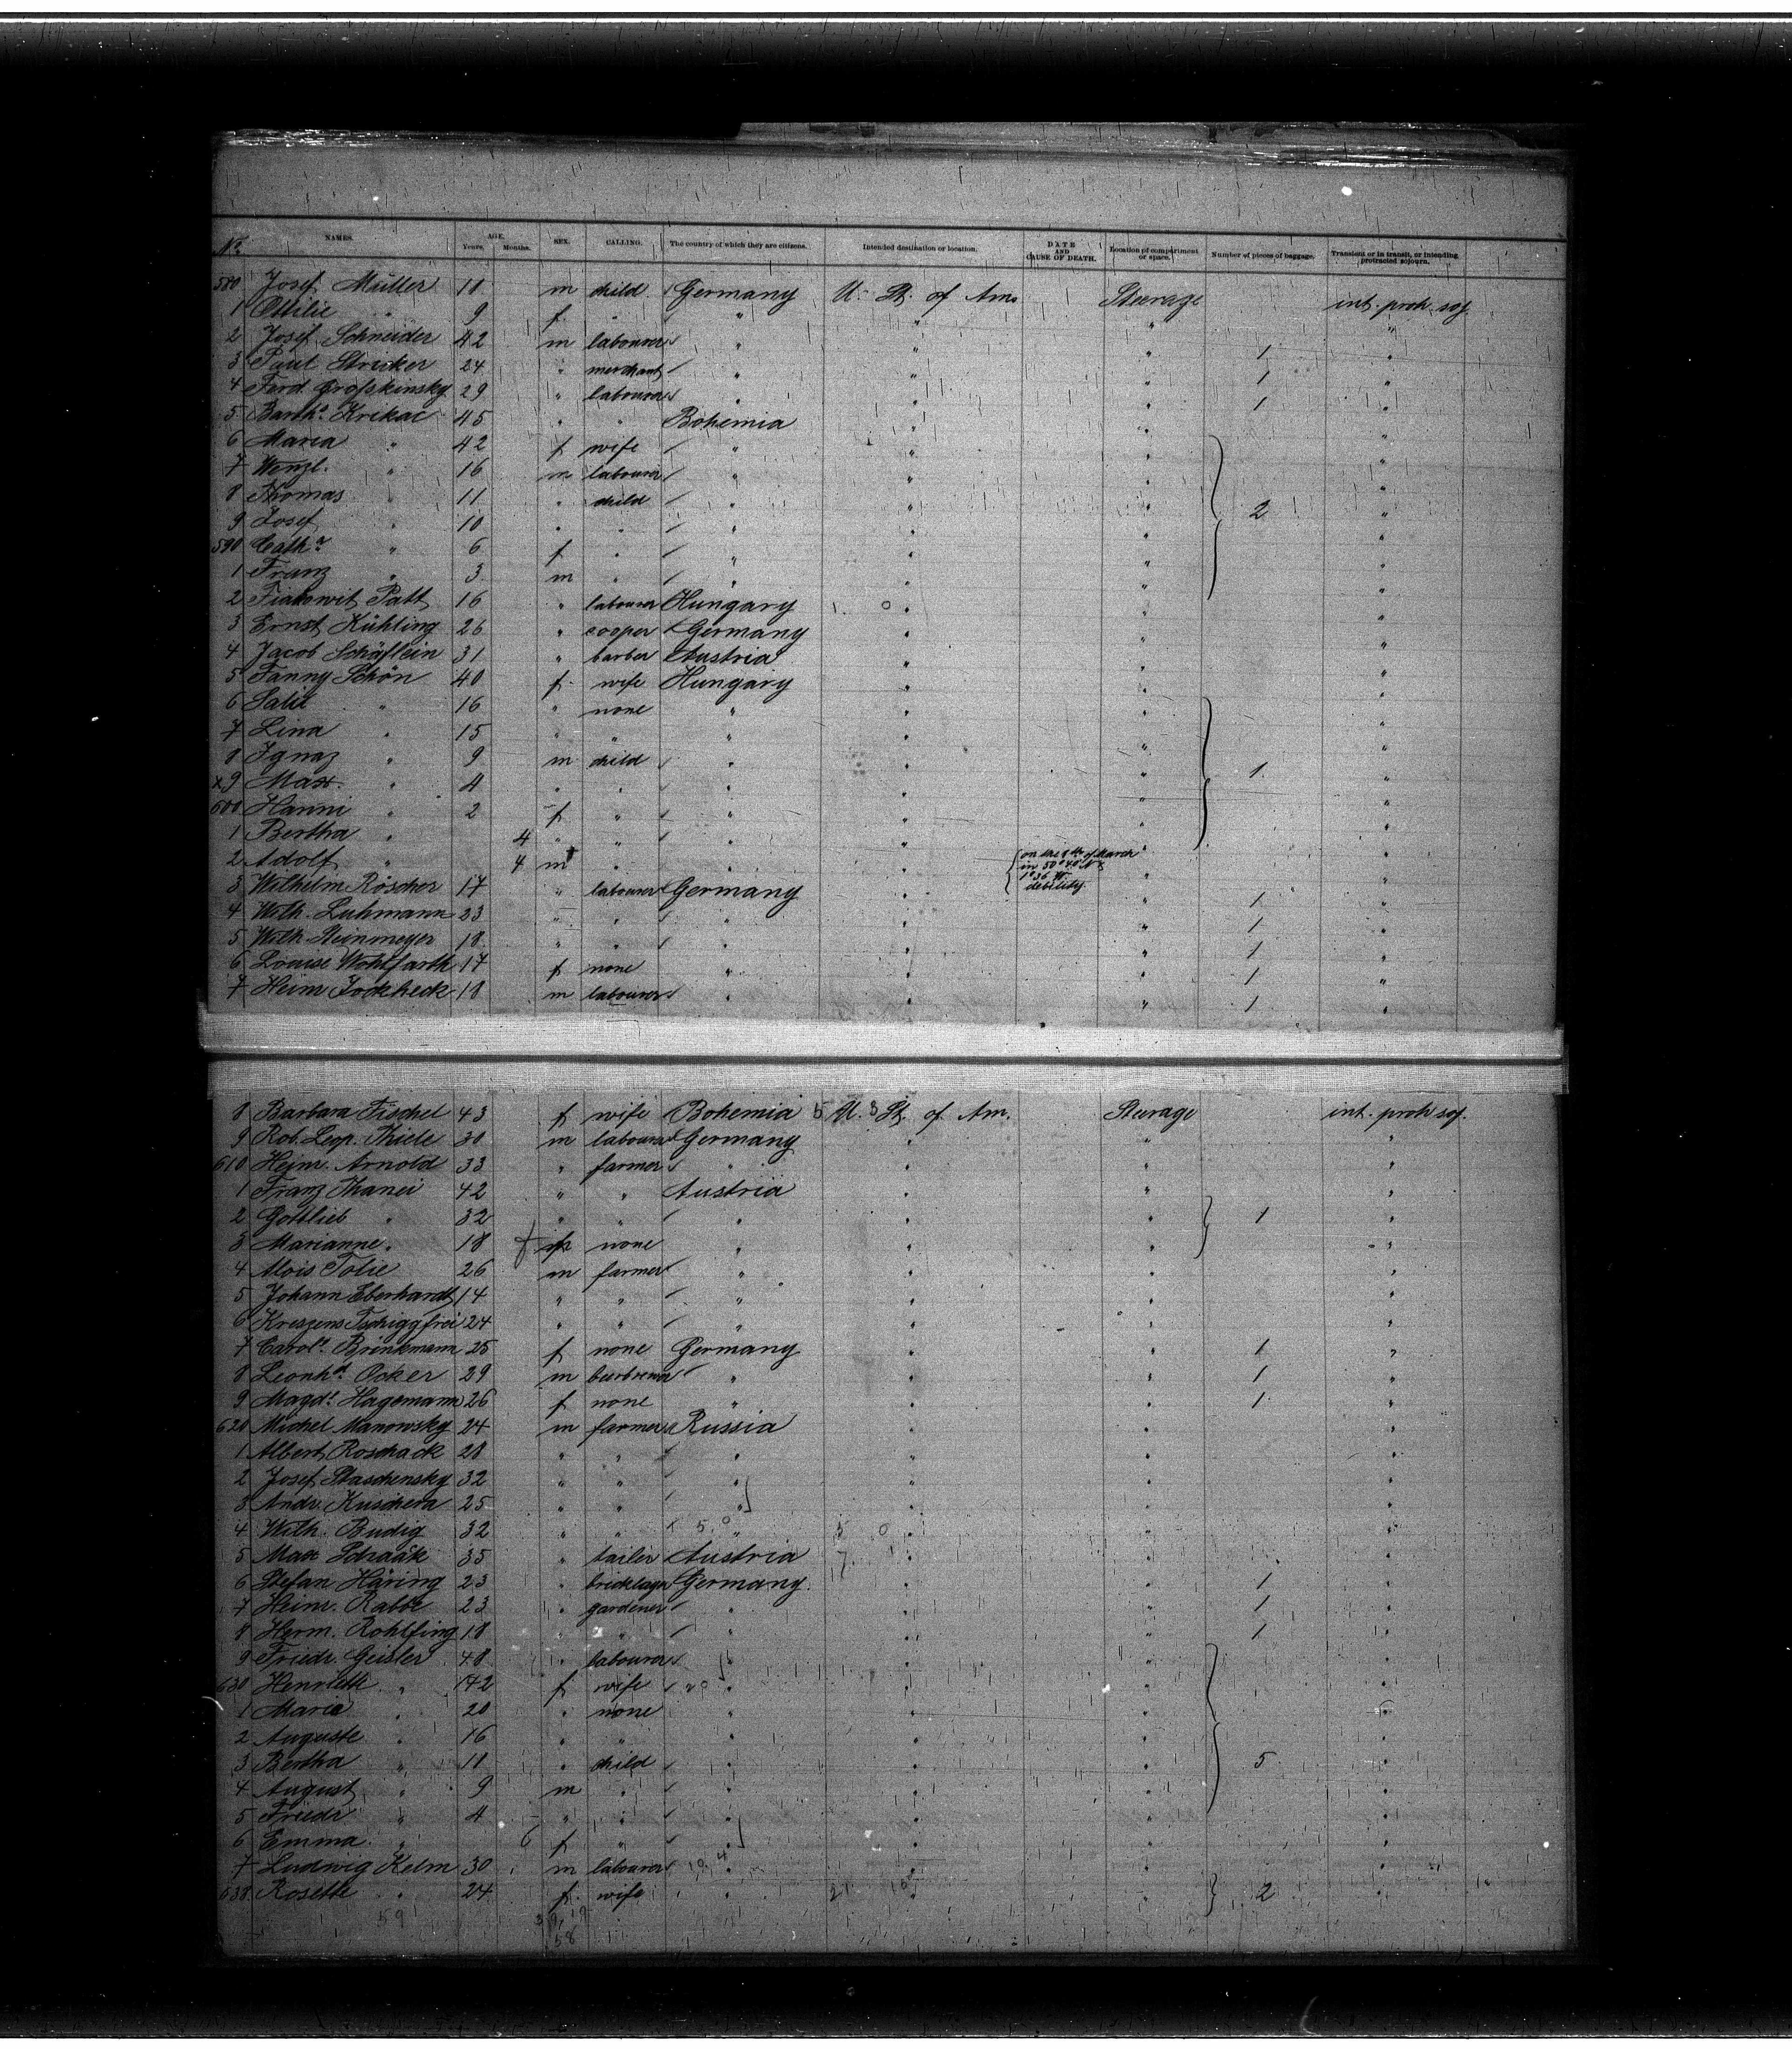 No. NAMES. AGE. Years. Months. SEX. CALLING. The country of which they are citizens. Intended destination or location. DATE AND CAUSE OF DEATH. Location of compartment or space. Number of pieces of baggage. Transient or in transit, or intending protracted sojourn.
580 Josef Müller 10 m child Germany U. St. of Am. Steerage int. protr. soj.
1 Ottilie " 9 f " " " " "
2 Josef Schneider 42 m labourer " " " 1 "
3 Paul Stricker 24 " merchant " " " 1 "
4 Ferd. 29 " labourer " " " 1 "
5 Barth. Krikac 45 " " Bohemia " " "
6 Maria " 42 f wife " " " "
7 Wenzl. " 16 m labourer " " " "
8 Thomas " 11 " child " " " 2 "
9 Josef " 10 " " " " " "
590 Cath.a " 6 f " " " " "
1 Franz " 3 m " " " " "
2 Patt 16 " labourer Hungary " " "
3 Ernst Kühling 26 " cooper Germany " " "
4 Jacob Schäflein 31 " barber Austria " " "
5 Fanny Schön 40 f. wife Hungary " " "
6 Salie " 16 " none " " " "
7 Lina " 15 " " " " " "
8 Ignaz " 9 m child " " " 1 "
x9 Max " 4 " " " " " "
600 Hanni " 2 f " " " " "
1 Bertha " 4 " " " " " "
2 Adolf " 4 m † " " " on the 8th of March in 50°40' N & 1°36 W. debility. " "
3 Wilhelm Röscher 17 " labourer Germany " " 1 "
4 Wilh. Luhmann 23 " " " " " 1 "
5 Wilh. Steinmeyer 18 " " " " " 1 "
6 Louise Wohlfarth 17 f none " " " 1 "
7 Heinr. Jockheck 18 m labourer " " " 1 "
8 Barbara Fischel 43 f wife Bohemia U. St. of Am. Steerage int. protr. soj.
9 Rob. Leop. Thiele 30 m labourer Germany " " "
610 Heinr. Arnold 33 " farmer " " " "
1 Franz Thanei 42 " " Austria " " "
2 Gottlieb " 32 " " " " " 1 "
3 Marianne " 18 f none " " " "
4 Alois Folie 26 m farmer " " " "
5 Johann Eberhardt 14 " " " " " "
6 Kreszens Tschiggfrei 24 " " " " " "
7 Carol. Brinkmann 25 f none Germany " " 1 "
8 Leonhd. Ocker 29 m " " " 1 "
9 Magd. Hagemann 26 f none " " " 1 "
620 Michel Manowsky 24 m farmer Russia " " "
1 Albert Roschack 28 " " " " " "
2 Josef Staschensky 32 " " " " " "
3 Andr. Kuschera 25 " " " " " "
4 Wilh. Budig 32 " " " " " "
5 Max 35 " tailer Austria " " "
6 Stefan Häring 23 " bricklayer Germany " " 1 "
7 Heinr. Rabbe 23 " gardener " " " 1 "
8 Herm. Rohlfing 18 " " " " " 1 "
9 Friedr. Geisler 48 " labourer " " " "
630 Henriette " 42 f wife " " " "
1 Maria " 20 " none " " " "
2 Auguste " 16 " " " " " "
3 Bertha " 11 " child " " " 5 "
4 August " 9 m " " " " "
5 Friedr " 4 " " " " " "
6 Emma " 6 f " " " " "
7 Ludwig Kelm 30 m labourer " " " "
638 Rosette " 24 f. wife " " " 2 "
59
58